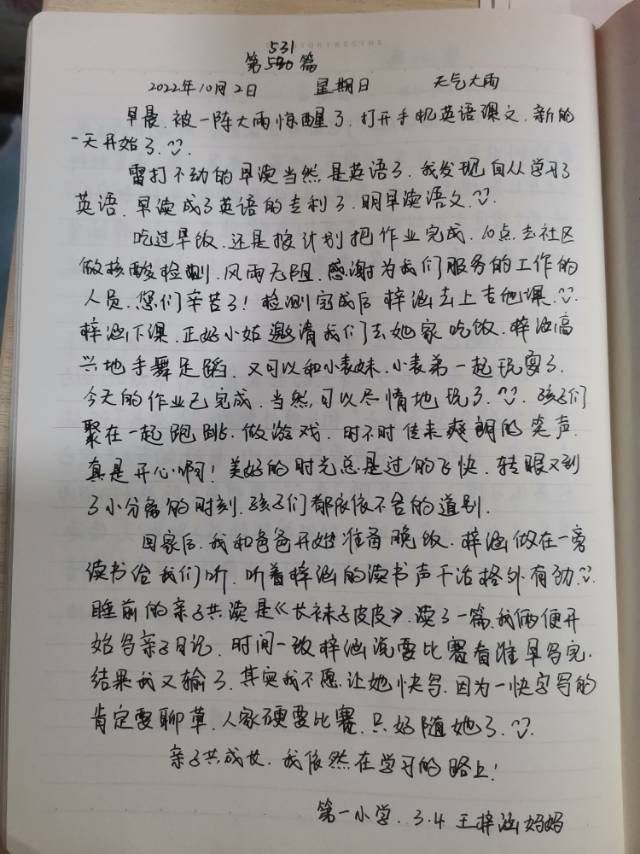 531
第530篇
2022年10月2日 星期日 天气大雨
早晨,被一阵大雨惊醒了,打开手机英语课文,新的
一天开始了.
雷打不动的早读当然是英语了,我发现自从学习了
英语,早读成了英语的专利了,明早读语文.
吃过早饭,还是按计划把作业完成,10点,去社区
做核酸检测,风雨无阻,感谢为我们服务的工作的
人员,您们辛苦了!检测完成后梓涵去上吉他课.
梓涵下课,正好小姑邀请我们去她家吃饭,梓涵高
兴地手舞足蹈,又可以和小表妹,小表弟一起玩耍了.
今天的作业已完成,当然,可以尽情地玩了.孩子们
聚在一起跑跳,做游戏,时不时传来爽朗的笑声,
真是开心啊!美好的时光总是过的飞快,转眼又到
了小分离的时刻,孩子们都依依不舍的道别.
回家后,我和爸爸开始准备晚饭,梓涵做在一旁
读书给我们听,听着梓涵的读书声干活格外有劲.
睡前的亲子共读是《长袜子皮皮》,读了一篇,我俩便开
始写亲子日记,时间一致梓涵说要比赛看谁早写完,
结果我又输了,其实我不愿让她快写,因为一快字写的
肯定要聊草,人家硬要比赛,只好随她了.
亲子共成长,我依然在学习的路上!
第一小学.3.4 王梓涵妈妈